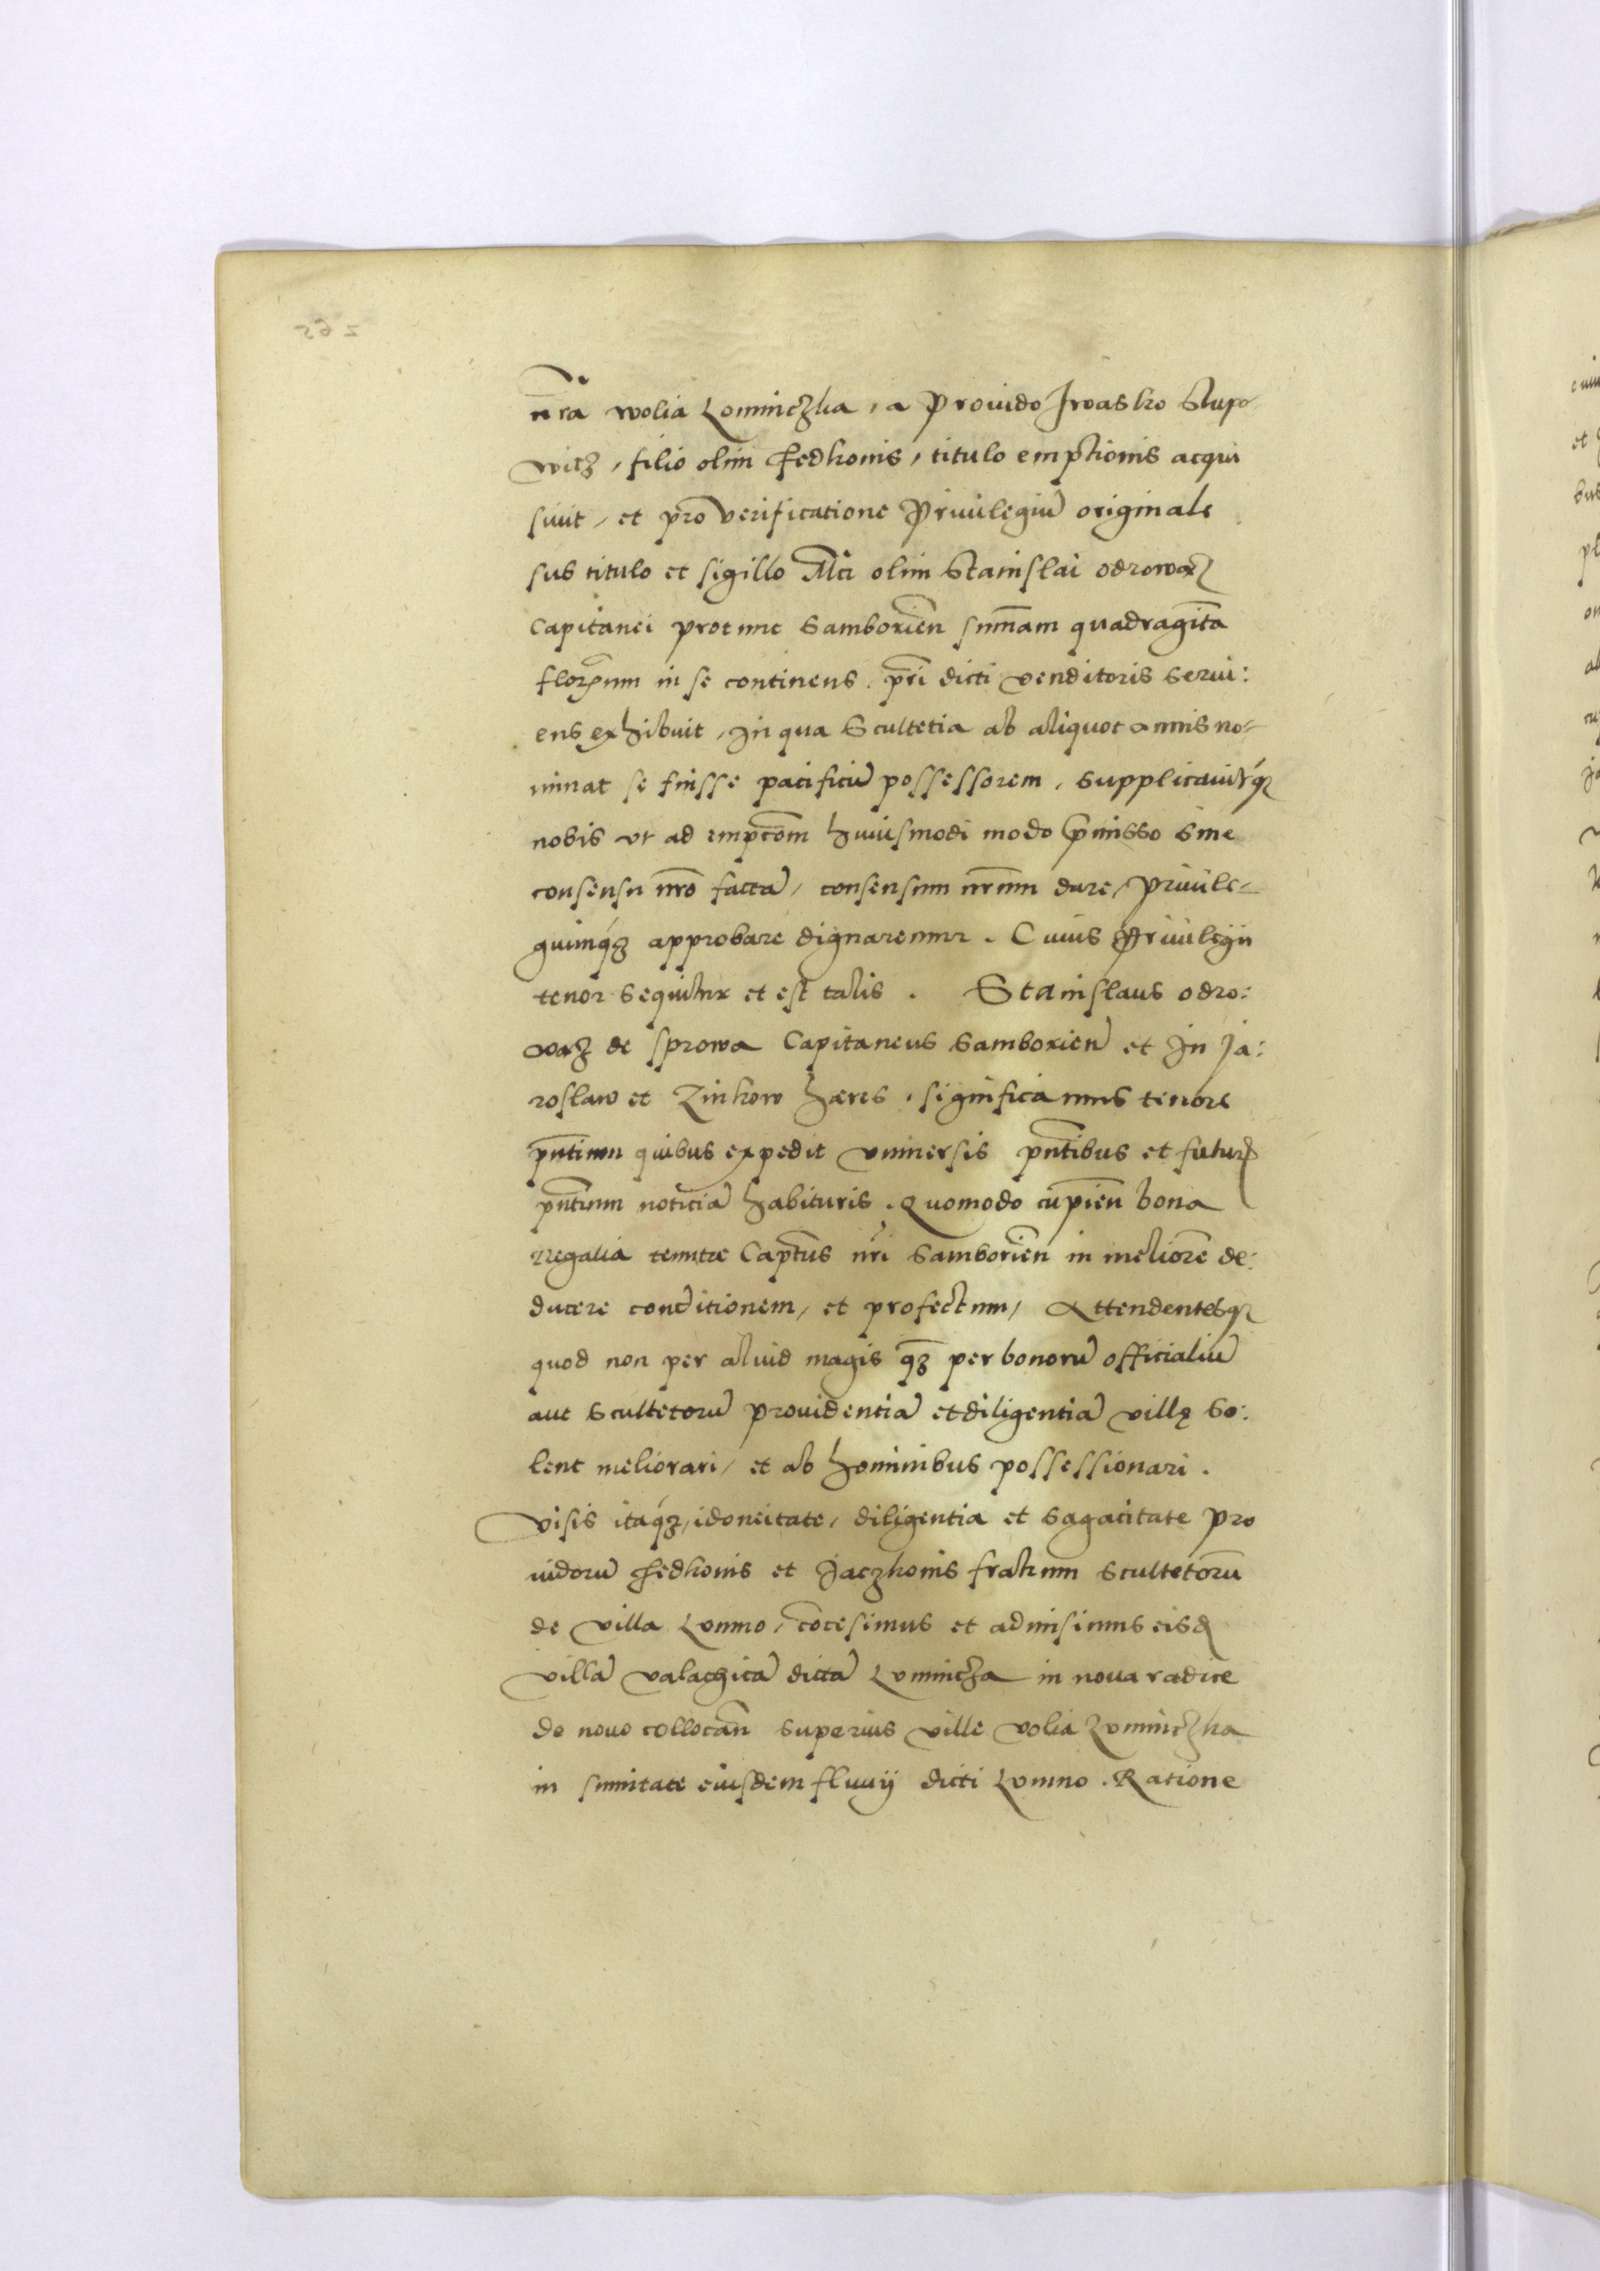 nr̃a wolia Lominczka, a Prouido Jwasko Stupo-
wicz, filio olim Fedkonis, titulo emptionis acqui
siuit, et pro verificatione Priuilegiũ originale
sub titulo et sigillo Mci olim Stanislai Odrowąz
Capitanei protunc Samborien̄ sum̃am quadragin̄ta
flor̃enum in se continens. pr̃i dicti venditoris serui:
ens exhibuit, In qua Scultetia ab aliquot annis no-
minat se fuisse pacificũ possessorem, supplicauitq́ȝ
nobis vt ad empc̃om huiusmodi modo p̃misso sine
consensu nr̃o factã, consensum nr̃um dare, Priuile-
giumq́ȝ approbare dignaremur. Cuius Priuilegii
tenor sequitur et est talis. Stanislaus Odro:
wąz de Sprowa Capitaneus Samborien̄ et In Ja:
roslaw et Zinkow hæres, significamus tenore
pñtium quibus expedit vniuersis pñtibus et futur̃
pñtium noticiã habituris. Quomodo cupien̄ bona
Regalia tenutæ Captus nr̃i Samborien̄ in meliorẽ de:
ducere conditionem, et profectum, Attendentesqȝ
quod non per aliud magis q̃ȝ per bonorũ officialiũ
aut Scultetorũ prouidentiã et diligentiã villę so:
lent meliorari, et ab hominibus possessionari.
Visis itaq́ȝ, idoneitate, diligentia et sagacitate pro
uidorũ Fedkonis et Jaczkonis fratrum Scultetorũ
de villa Lomno, cõcesimus et admisimus eisd̃
villã valachicã dictã Lvmnicza in noua radice
de nouo collocan̄ superius ville volia Lvmniczka
in sum̃itate eiusdem fluuij dicti Lomno. Ratione